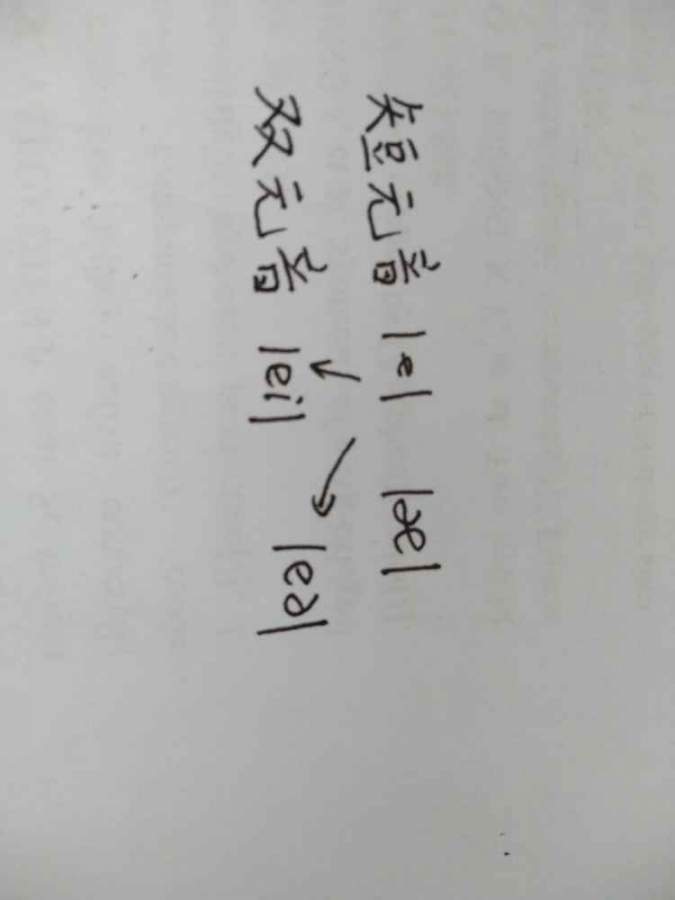 短元音 |e| |æ|
↙ ↘
双元音 |ei| |eə|